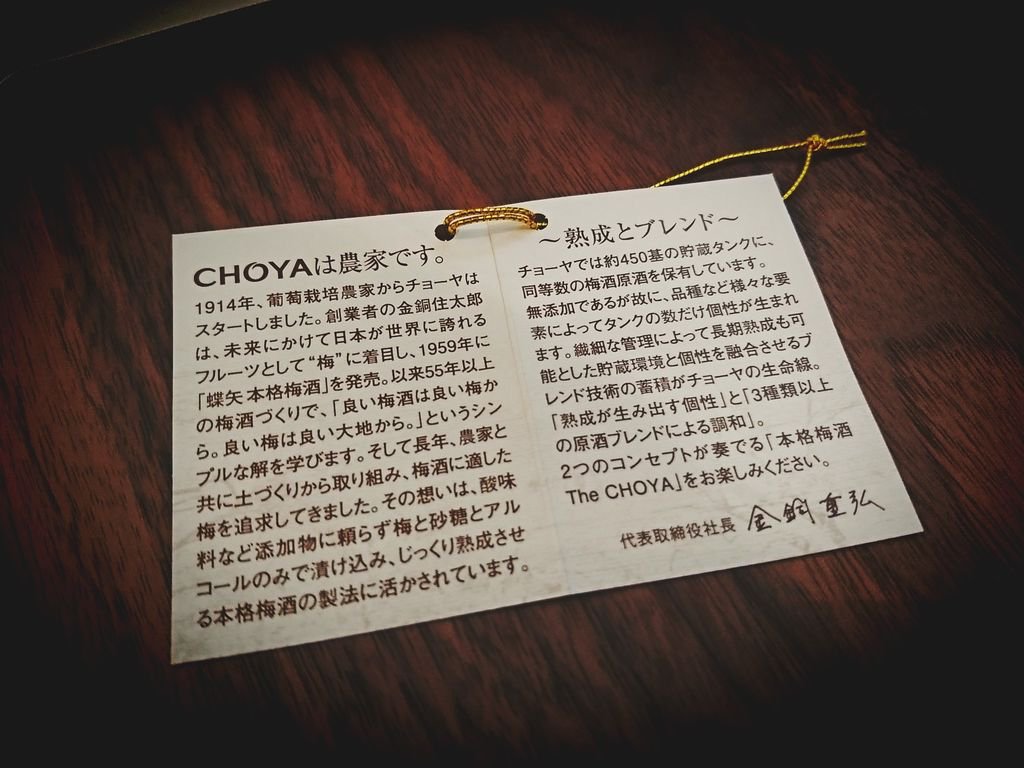 CHOYAは農家です。
1914年、葡萄栽培農家からチョーヤは
スタートしました。創業者の金銅住太郎
は、未来にかけて日本が世界に誇れる
フルーツとして“梅”に着目し、1959年に
「蝶矢 本格梅酒」を発売。以来55年以上
の梅酒づくりで、「良い梅酒は良い梅か
ら。良い梅は良い大地から。」というシン
プルな解を学びます。そして長年、農家と
共に土づくりから取り組み、梅酒に適した
梅を追求してきました。その想いは、酸味
料など添加物に頼らず梅と砂糖とアル
コールのみで漬け込み、じっくり熟成させ
る本格梅酒の製法に活かされています。
～熟成とブレンド～
チョーヤでは約450基の貯蔵タンクに、
同等数の梅酒原酒を保有しています。
無添加であるが故に、品種など様々な要
素によってタンクの数だけ個性が生まれ
ます。繊細な管理によって長期熟成も可
能とした貯蔵環境と個性を融合させるブ
レンド技術の蓄積がチョーヤの生命線。
「熟成が生み出す個性」と「3種類以上
の原酒ブレンドによる調和」。
2つのコンセプトが奏でる「本格梅酒
The CHOYA」をお楽しみください。
代表取締役社長 金銅重弘